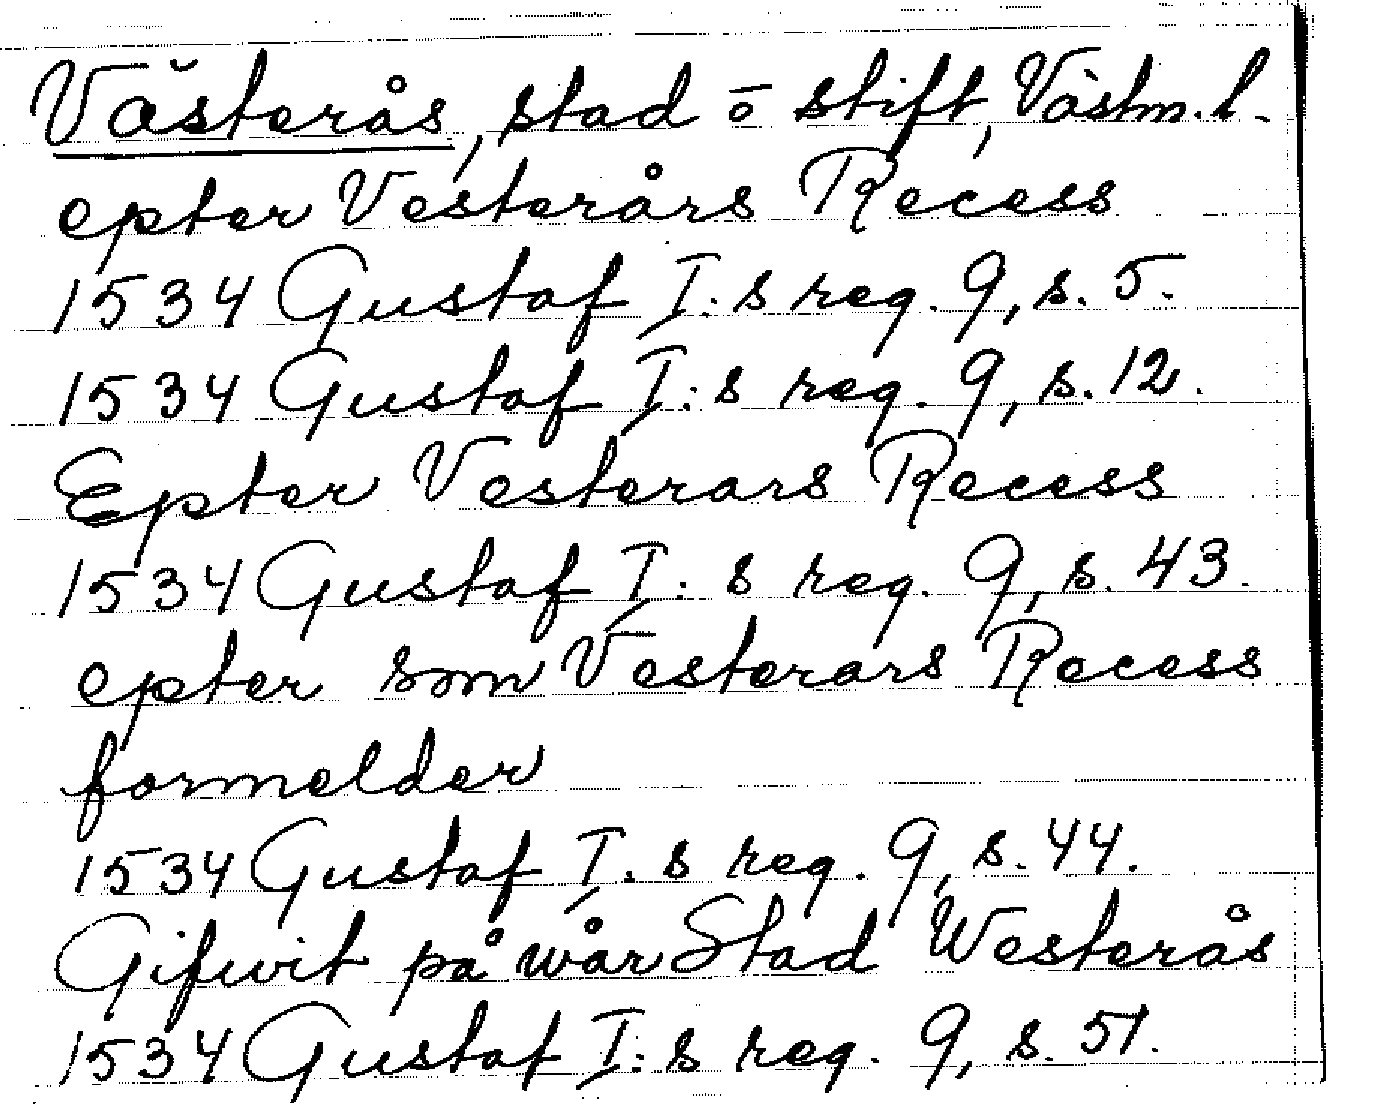 Västerås, stad o stift, Västm. l.
epter Vesterårs Recess
1534 Gustaf I:s reg. 9, s. 5.
1534 Gustaf I:s reg. 9, s. 12.
Epter Vesterars Recess
1534 Gustaf I:s reg. 9, s. 43.
epter som Vesterars Recess
formelder
1534 Gustaf I.s reg. 9, s. 44.
Gifwit på wår Stad Westerås
1534 Gustaf I:s reg. 9, s. 51.